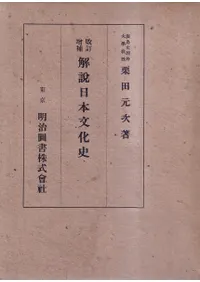 栗田元次著
改訂
増補
解説日本文化史
東京
明治圖書株式會社